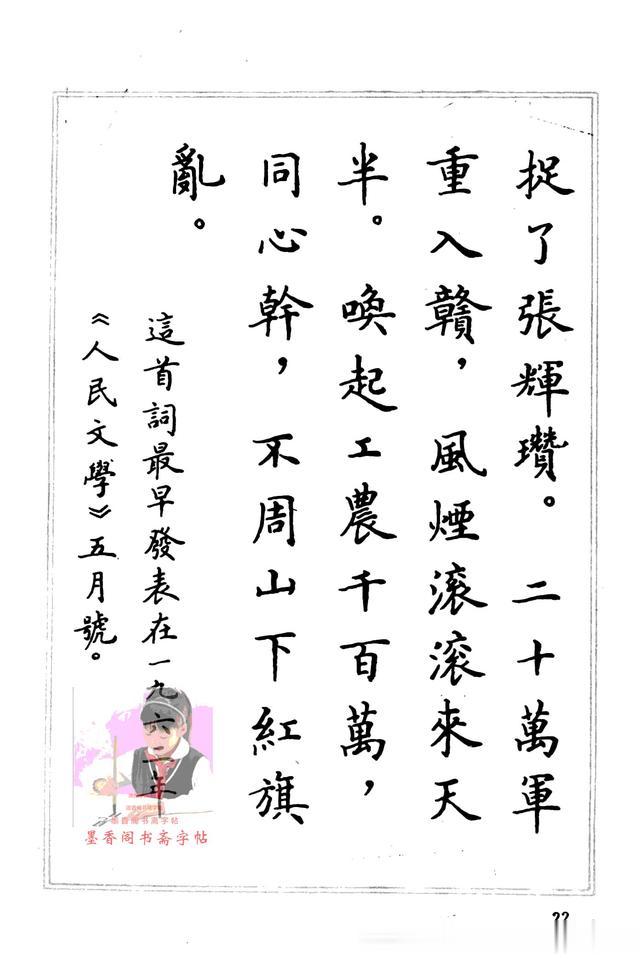 捉了張輝瓚。二十萬軍
重入贛，風煙滾滾來天
半。喚起工農千百萬，
同心幹，不周山下紅旗
亂。
這首詞最早發表在一九六二年
《人民文學》五月號。
墨香阁书斋字帖
墨香阁书斋字帖
22